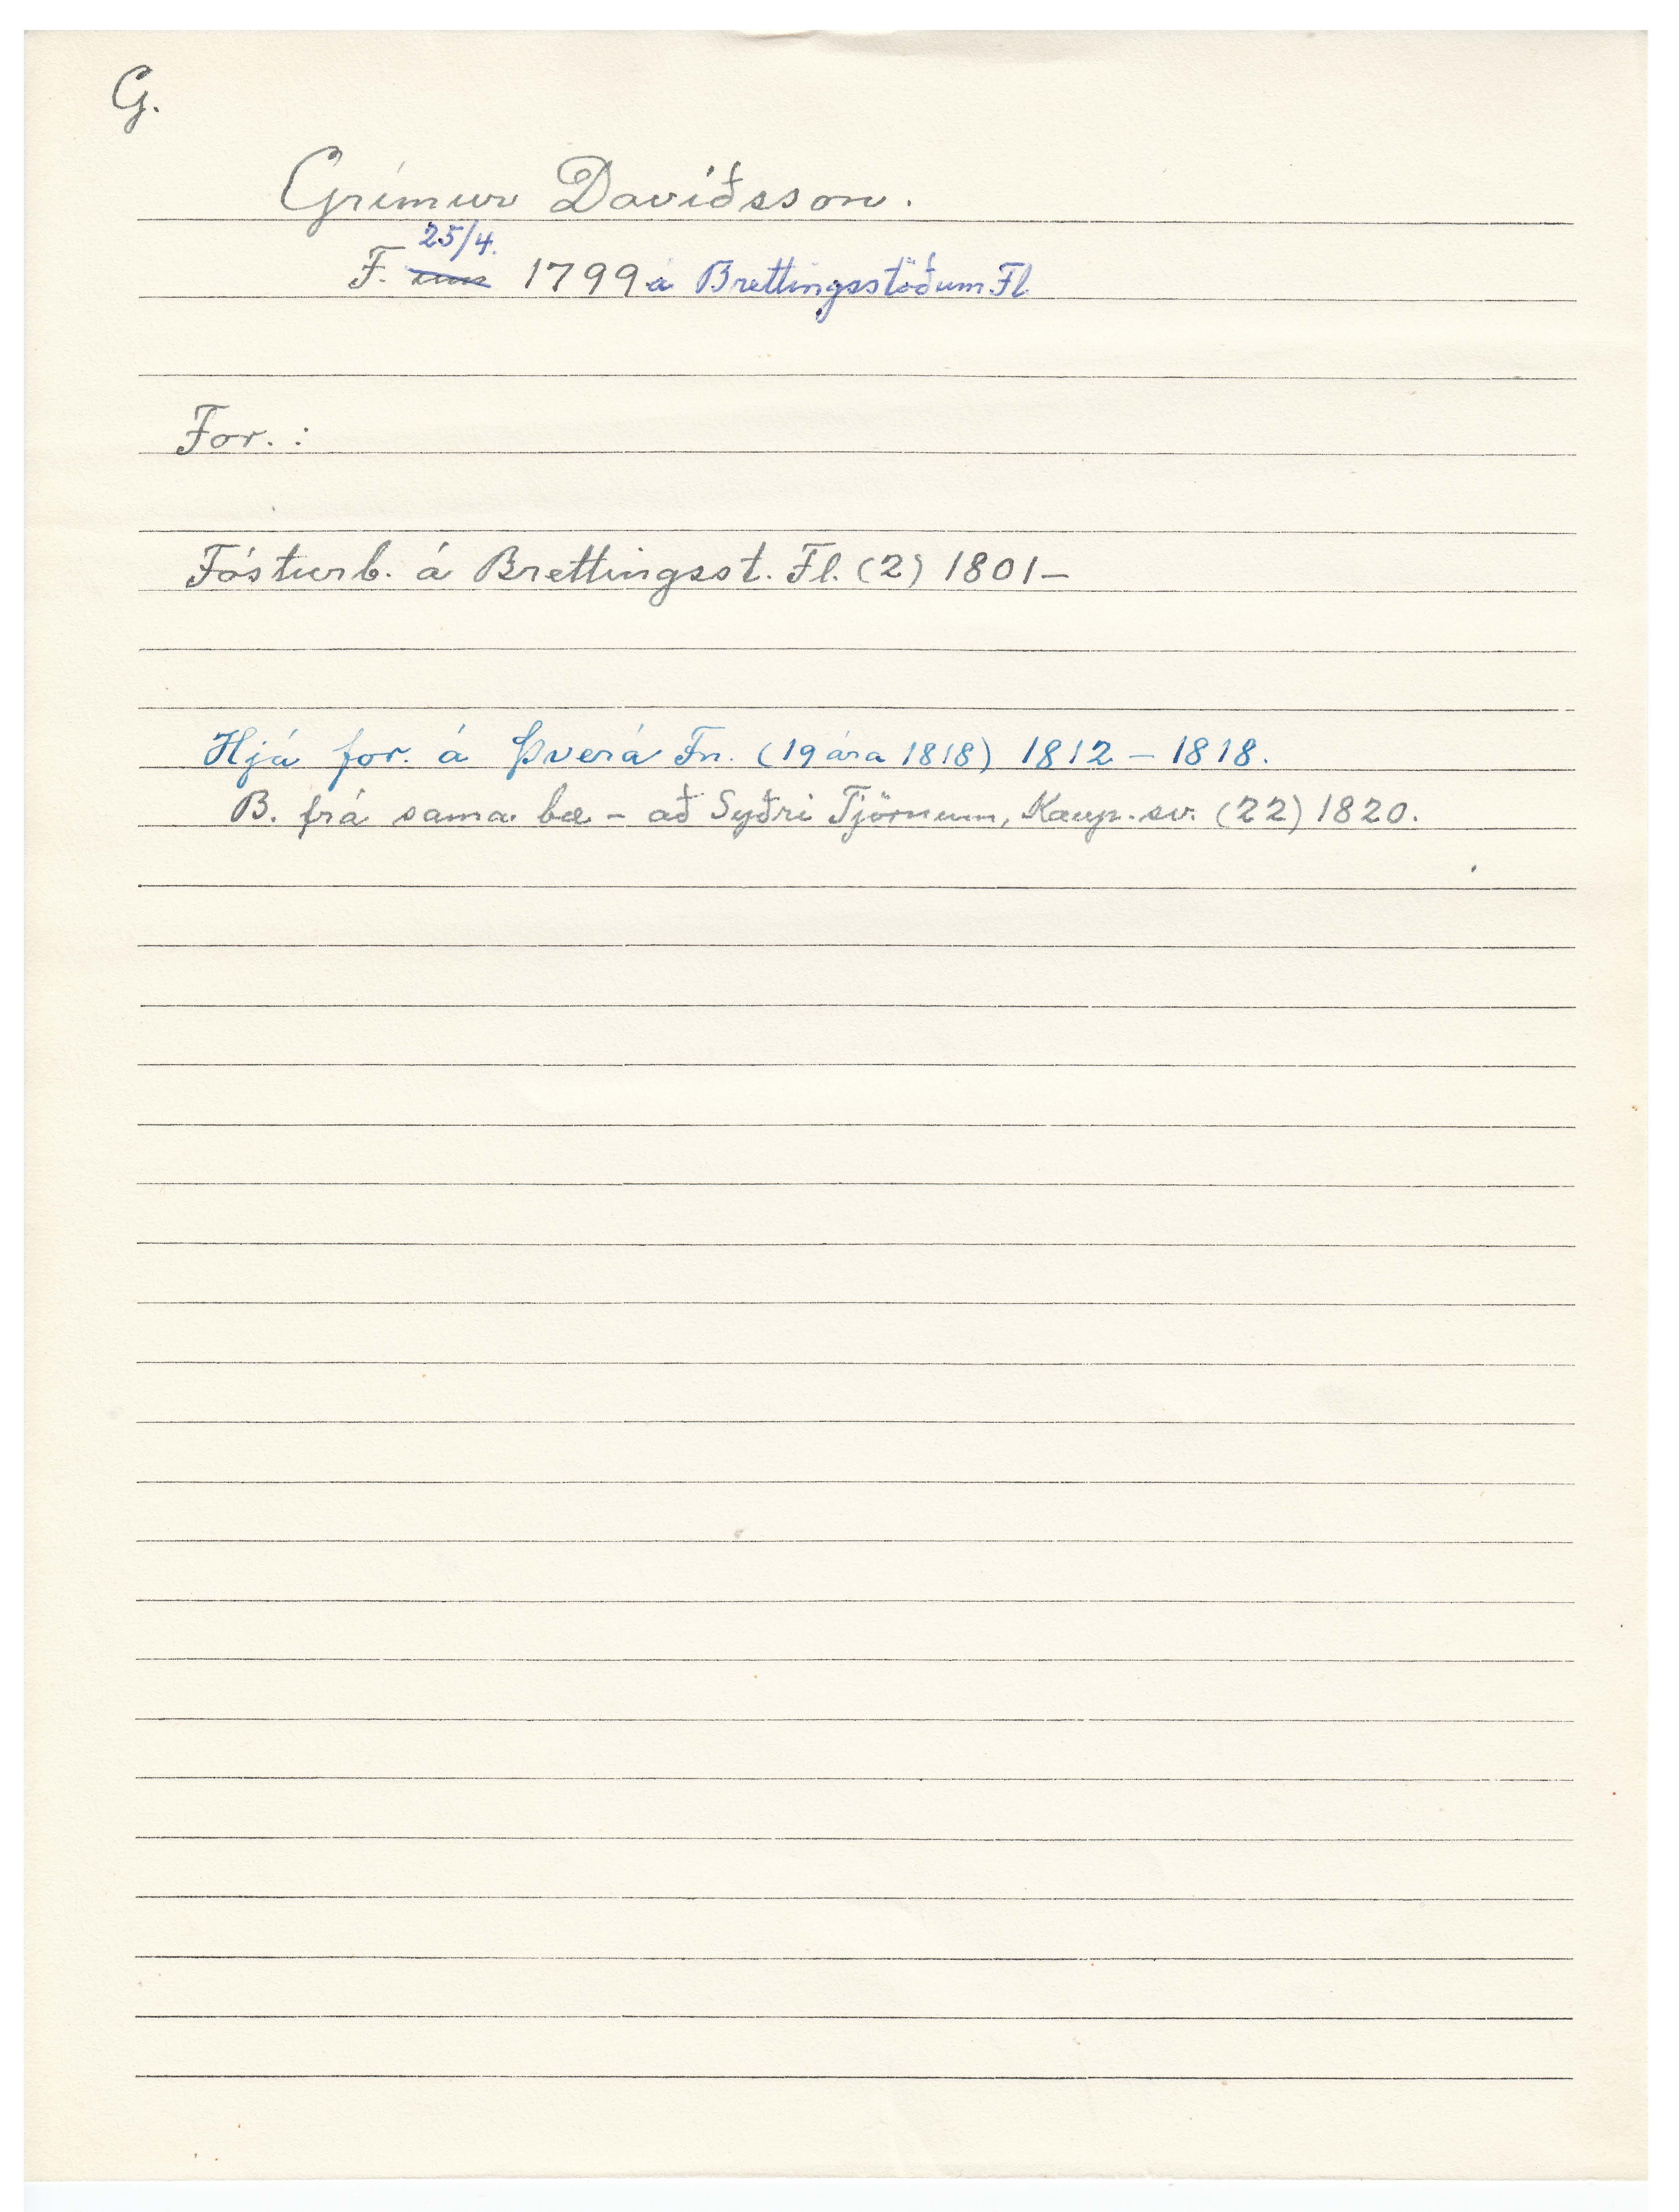 G.
Grímur Davíðsson.
25/4.
F. um 1799 á Brettingsstöðum Fl.
For. :
Fósturb. á Brettingsst. Fl. (2) 1801-
Hjá for. á Þverá Fn. (19 ára 1818) 1812 - 1818.
B. frá sama bæ - að Syðri Tjörnum, Kaup.sv. (22) 1820.